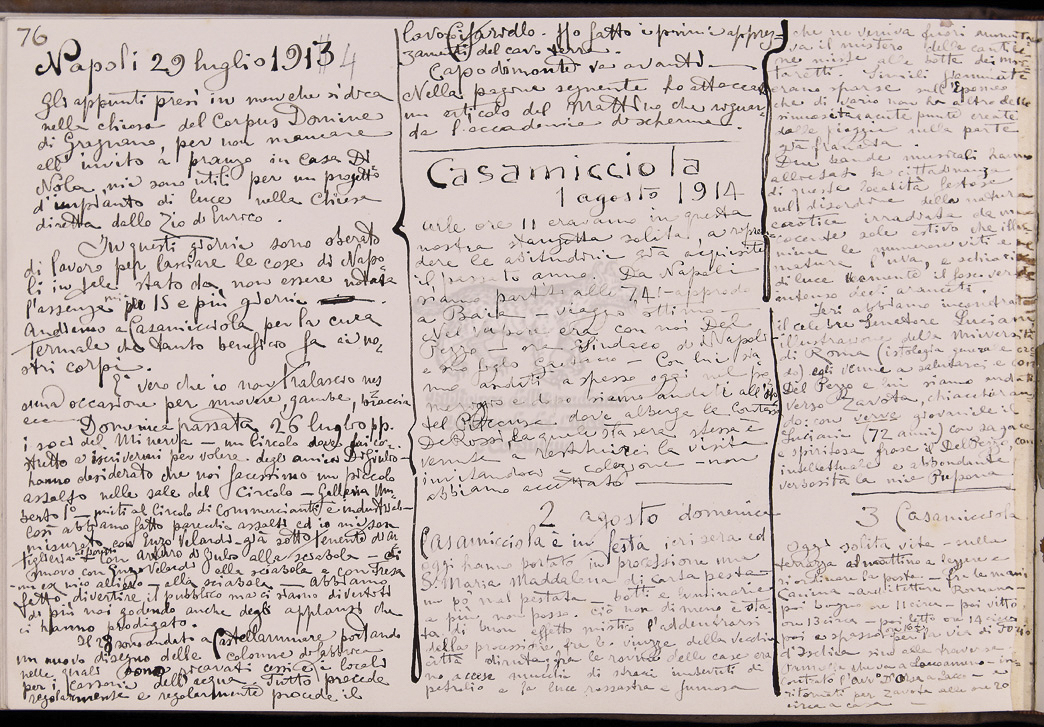 76
Napoli 29 luglio 1913 4
Gli appunti presi in men che si dica
nella chiesa del Corpus Domine
di Gragnano, per non mancare
all' invito a pranzo in casa Di
Nola, mi sono utili per un progetto
d'impianto di luce nella Chiesa
diretta dallo Zio d'Enrico.
In questi giorni sono oberato
di lavoro per lasciare le cose di Napo
li in tale stato da non essere notata
l'assenza mia per 15 e più giorni
Andremo a Casamicciola per la cura
Termale che tanto beneficio fa ai no-
stri corpi.
E' vero che io non tralascio nes
suna occasione per muovere, gambe, braccia
ecc
Domenica passata 26 luglio pp.
i soci del Minerva - un Circolo dove fui co-
stretto a iscrivermi per volere degli amici
hanno desiderato che noi facessimo un piccolo
assalto nelle sale del Circolo - Galleria Um-
berto I° - uniti al Circolo di Commercianti e industriali
Così abbiamo fatto parecchi assalti ed io mi son
misurato con Enzo Velardi - già sottotenente di ar
tiglieria - con Arturo di Giulio alla sciabola - di
nuovo con Enzo Velardi alla sciabola e con
ed mio allievo - alla sciabola - Abbiamo
fatto divertire il pubblico ma ci siamo divertiti
di più noi godendo anche degli applausi che
ci hanno prodigato.
Il 28 sono andato a Castellammare portando
un nuovo disegno delle colonne di fabbrica
nelle quali sono ricavati i locali
per i cassoni dell'acqua. Tutto procede
regolarmente e regolarmente procede il
lavoro Ho fatto i primi apprez-
zamenti del cavo terra.
Capodimonte va avanti.
Nella pagina seguente ho attaccato
un articolo del Mattino che riguar-
da l'accademia di scherma.
Casamicciola
1 agosto 1914
alle ore 11 eravamo in questa
nostra stanzetta solita, a ripren
dere le abitudini già acquisite
il passato anno. Da Napoli
siamo partiti alle 7,41 - approdo
a Baia - viaggo ottimo -
era con noi Del
Pezzo - ex Sindaco di Napoli
e suo figlio - Con lui sia
mo andati a spasso oggi nel po
meriggio ed e siamo andati all'
del dove alberga la Contessa
De Rossi la quale sta sera stessa è
venuta restituirci la visita
invitandoci a colazione - non
abbiamo accettato
2 agosto domenica
Casamicciola è in festa ieri sera ed
oggi hanno portato in processione una
S. Maria Maddalena di carta pesta
un po' mal pestata - botti e luminarie
a più non posso. ciò non di meno è sta
ta di buon effetto mistico l'addentrarsi
della processione fra le viuzze della vecchia
città diruta, fra le rovine delle case era
no accese mucchi di stracci inzuppati di
petrolio e la luce rossastra e fumosa
che ne veniva fuori aumenta
va il mistero delle cantile
ne miste alle botte dei mor
taretti. Simili
erano sparse sull'Epomeo
che di vario non ha altro
create
dalle piogge sulla parte
già franata.
Due bande musicali hanno
allietato la cittadinanza
di questa località festosa
nel disordine della natura
caotica irradiata da un
cocente sole estivo che illu
mina le numerose viti e
matura l'uva, e schiari
di luce il fosco ver
intenso degli aranceti.
Ieri abbiamo incontrato
il celebre Senatore Luciani
illustrazione della Università
di Roma (istologia generale e
) egli venne a salutarci e con
Del Pezzo e lui siamo andati
verso Zavota, chiacchieran
do: con verve giovanile il
Luciani (72 anni) con sagace
e spiritosa frase il Del Pezzo, con
intellettuale e abbondante
verbosità la mia Peppona
3 Casamicciola
Oggi solita vita - sulla
terrazza al mattino a leggere
fra le mani
Canina - architettura Romana -
poi bagno ore 11 circa - poi vitto
ore 13 circa - poi letto ore 14 circa
poi a spasso per la via di Forio
d'Ischia sino alla traversa
ri
tornati per Zavota alle ore 20
circa a casa -